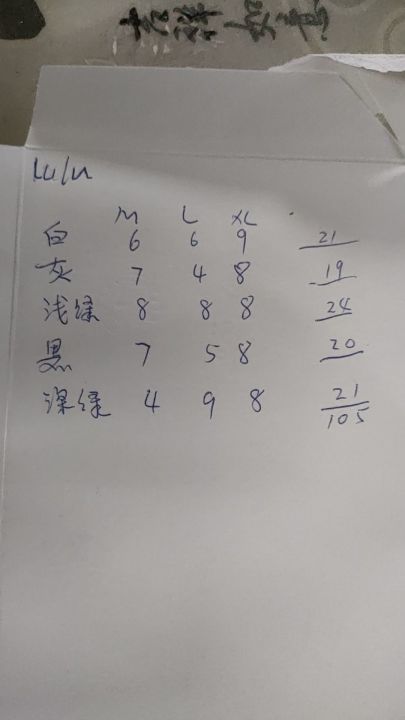 吉祥如意
lulu
M L XL
白 6 6 9 21
灰 7 4 8 19
浅绿 8 8 8 24
黑 7 5 8 20
深绿 4 9 8 21
105